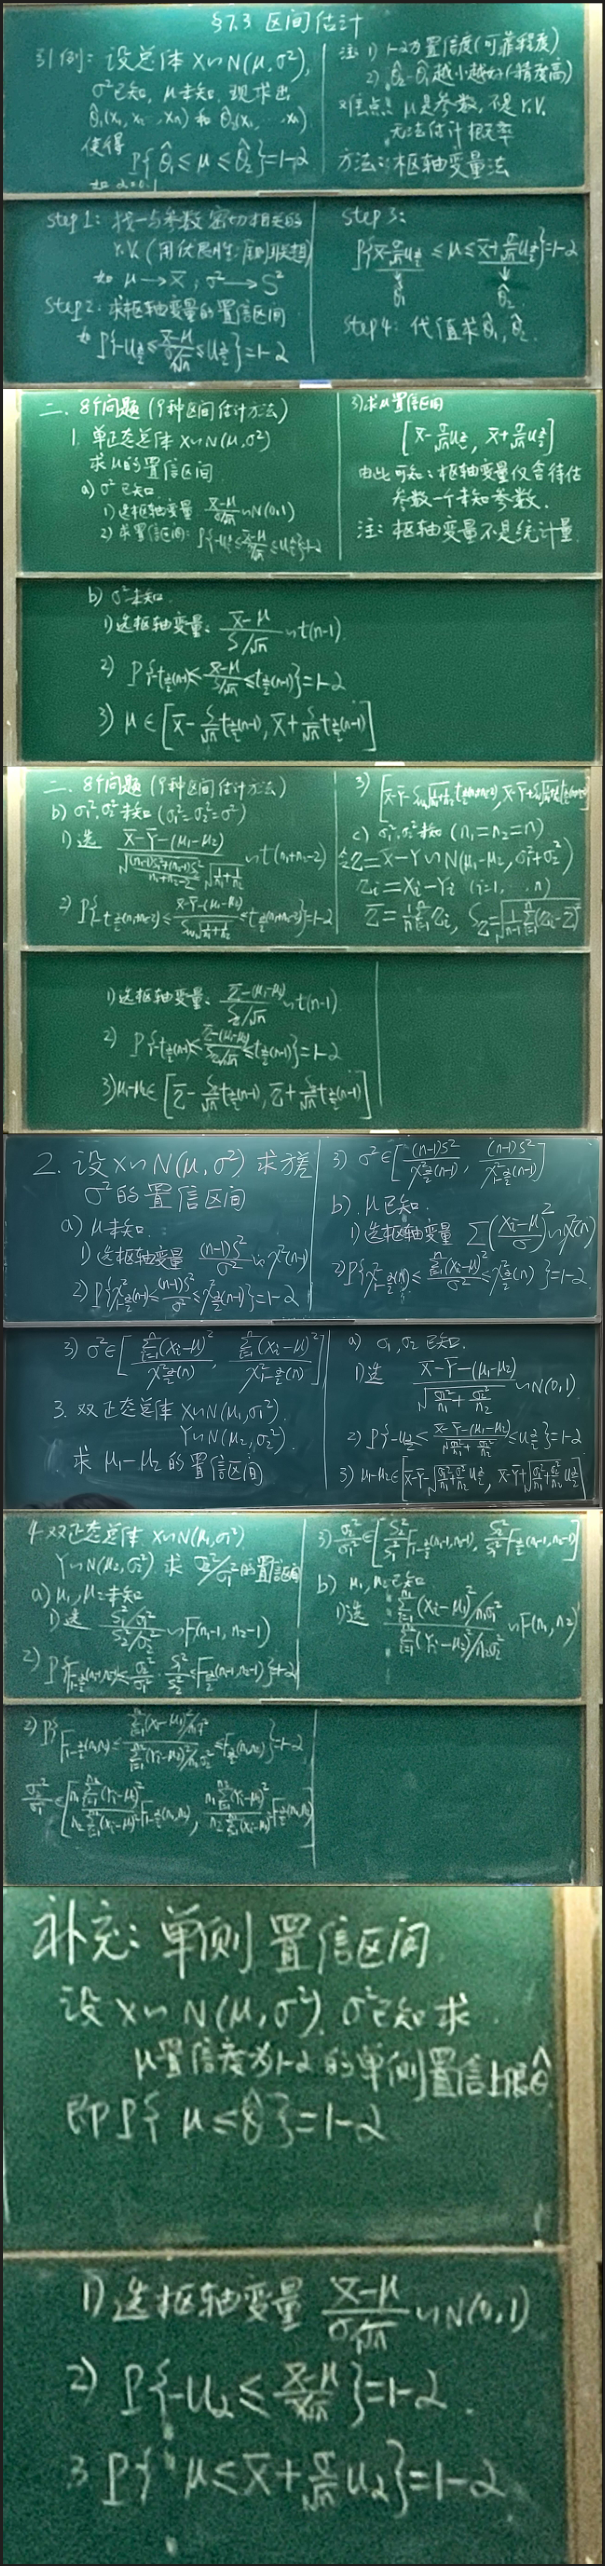 §7.3 区间估计
引例: 设总体 X~N(μ, σ²),
σ²已知, μ未知, 现求出
θ̂₁(x₁, x₂, …xₙ) 和 θ̂₂(x₁, … xₙ)
使得 P{θ̂₁ ≤ μ ≤ θ̂₂}=1-α
如 α=0.1
注: 1) 1-α为置信度(可靠程度)
2) θ̂₂-θ̂₁越小越好(精度高)
难点: μ是参数, 不是r.v.
无法估计概率
方法: 枢轴变量法
step1: 找一与参数密切相关的
r.v.
如 μ→X̄, σ²→S²
step2: 求枢轴变量的置信区间
如 P{-u_{α/2} ≤ (X̄-μ)/(σ/√n) ≤ u_{α/2}}=1-α
step3:
P{X̄-(σ/√n)u_{α/2} ≤ μ ≤ X̄+(σ/√n)u_{α/2}}=1-α
θ̂₁ θ̂₂
step4: 代值求θ̂₁, θ̂₂.
二、8个问题 (9种区间估计方法)
1. 单正态总体 X~N(μ, σ²)
求μ的置信区间
a) σ²已知
1) 选枢轴变量 (X̄-μ)/(σ/√n) ~N(0,1)
2) 求置信区间: P{-u_{α/2} ≤ (X̄-μ)/(σ/√n) ≤ u_{α/2}}=1-α
3) 求μ置信区间
[X̄-(σ/√n)u_{α/2}, X̄+(σ/√n)u_{α/2}]
由此可知: 枢轴变量仅含待估
参数一个未知参数.
注: 枢轴变量不是统计量.
b) σ²未知
1) 选枢轴变量: (X̄-μ)/(S/√n) ~t(n-1).
2) P{-t_{α/2}(n-1) ≤ (X̄-μ)/(S/√n) ≤ t_{α/2}(n-1)}=1-α
3) μ∈[X̄-(S/√n)t_{α/2}(n-1), X̄+(S/√n)t_{α/2}(n-1)]
二、8个问题 (9种区间估计方法)
b) σ₁², σ₂² 未知 (σ₁²=σ₂²=σ²)
1) 选 (X̄-Ȳ-(μ₁-μ₂))/(√(((n₁-1)S₁²+(n₂-1)S₂²)/(n₁+n₂-2)) √(1/n₁+1/n₂)) ~t(n₁+n₂-2)
2) P{-t_{α/2}(n₁+n₂-2) ≤ (X̄-Ȳ-(μ₁-μ₂))/(S_w√(1/n₁+1/n₂)) ≤ t_{α/2}(n₁+n₂-2)}=1-α
3) [X̄-Ȳ-S_w√(1/n₁+1/n₂) t_{α/2}(n₁+n₂-2), X̄-Ȳ+S_w√(1/n₁+1/n₂) t_{α/2}(n₁+n₂-2)]
c) σ₁², σ₂² 未知 (n₁=n₂=n)
令Z=X-Y~N(μ₁-μ₂, σ₁²+σ₂²)
Zᵢ=Xᵢ-Yᵢ (i=1, … n)
Z̄=(1/n)∑ᵢ₌₁ⁿ Zᵢ, S_Z=√((1/(n-1))∑ᵢ₌₁ⁿ(Zᵢ-Z̄)²)
1) 选枢轴变量: (Z̄-(μ₁-μ₂))/(S_Z/√n) ~t(n-1).
2) P{-t_{α/2}(n-1) ≤ (Z̄-(μ₁-μ₂))/(S_Z/√n) ≤ t_{α/2}(n-1)}=1-α
3) μ₁-μ₂∈[Z̄-(S_Z/√n)t_{α/2}(n-1), Z̄+(S_Z/√n)t_{α/2}(n-1)]
2. 设X~N(μ, σ²) 求方差
σ²的置信区间
a) μ未知.
1) 选枢轴变量 (n-1)S²/σ² ~χ²(n-1)
2) P{χ²_{1-α/2}(n-1) ≤ (n-1)S²/σ² ≤ χ²_{α/2}(n-1)}=1-α
3) σ²∈[(n-1)S²/χ²_{α/2}(n-1), (n-1)S²/χ²_{1-α/2}(n-1)]
b). μ已知.
1) 选枢轴变量 ∑((Xᵢ-μ)/σ)² ~χ²(n)
2) P{χ²_{1-α/2}(n) ≤ ∑ᵢ₌₁ⁿ(Xᵢ-μ)²/σ² ≤ χ²_{α/2}(n)}=1-α
3) σ²∈[∑ᵢ₌₁ⁿ(Xᵢ-μ)²/χ²_{α/2}(n), ∑ᵢ₌₁ⁿ(Xᵢ-μ)²/χ²_{1-α/2}(n)]
3. 双正态总体 X~N(μ₁, σ₁²),
Y~N(μ₂, σ₂²).
求 μ₁-μ₂ 的置信区间
a) σ₁, σ₂ 已知.
1) 选 (X̄-Ȳ-(μ₁-μ₂))/√(σ₁²/n₁+σ₂²/n₂) ~N(0,1)
2) P{-u_{α/2} ≤ (X̄-Ȳ-(μ₁-μ₂))/√(σ₁²/n₁+σ₂²/n₂) ≤ u_{α/2}}=1-α
3) μ₁-μ₂∈[X̄-Ȳ-√(σ₁²/n₁+σ₂²/n₂)u_{α/2}, X̄-Ȳ+√(σ₁²/n₁+σ₂²/n₂)u_{α/2}]
4. 双正态总体 X~N(μ₁, σ₁²)
Y~N(μ₂, σ₂²) 求 σ₂²/σ₁² 的置信区间
a) μ₁, μ₂未知
1) 选 (S₁²/σ₁²)/(S₂²/σ₂²) ~F(n₁-1, n₂-1)
2) P{F_{1-α/2}(n₁-1,n₂-1) ≤ (σ₂²/σ₁²)·(S₁²/S₂²) ≤ F_{α/2}(n₁-1,n₂-1)}=1-α
3) σ₂²/σ₁²∈[(S₂²/S₁²)F_{1-α/2}(n₁-1,n₂-1), (S₂²/S₁²)F_{α/2}(n₁-1,n₂-1)]
b) μ₁, μ₂已知
1) 选 (∑ᵢ₌₁ⁿ¹(Xᵢ-μ₁)²/n₁σ₁²)/(∑ᵢ₌₁ⁿ²(Yᵢ-μ₂)²/n₂σ₂²) ~F(n₁, n₂)
2) P{F_{1-α/2}(n₁,n₂) ≤ (∑ᵢ₌₁ⁿ¹(Xᵢ-μ₁)²/n₁σ₁²)/(∑ᵢ₌₁ⁿ²(Yᵢ-μ₂)²/n₂σ₂²) ≤ F_{α/2}(n₁,n₂)}=1-α
σ₂²/σ₁²∈[(n₁∑ᵢ₌₁ⁿ²(Yᵢ-μ₂)²)/(n₂∑ᵢ₌₁ⁿ¹(Xᵢ-μ₁)²) F_{1-α/2}(n₁,n₂), (n₁∑ᵢ₌₁ⁿ²(Yᵢ-μ₂)²)/(n₂∑ᵢ₌₁ⁿ¹(Xᵢ-μ₁)²) F_{α/2}(n₁,n₂)]
补充: 单侧置信区间
设 X~N(μ, σ²), σ²已知 求
μ置信度为1-α的单侧置信上限θ̂
即P{μ≤θ̂}=1-α
1) 选枢轴变量 (X̄-μ)/(σ/√n) ~N(0,1)
2) P{-u_α ≤ (X̄-μ)/(σ/√n)}=1-α.
3 P{μ≤X̄+(σ/√n)u_α}=1-α